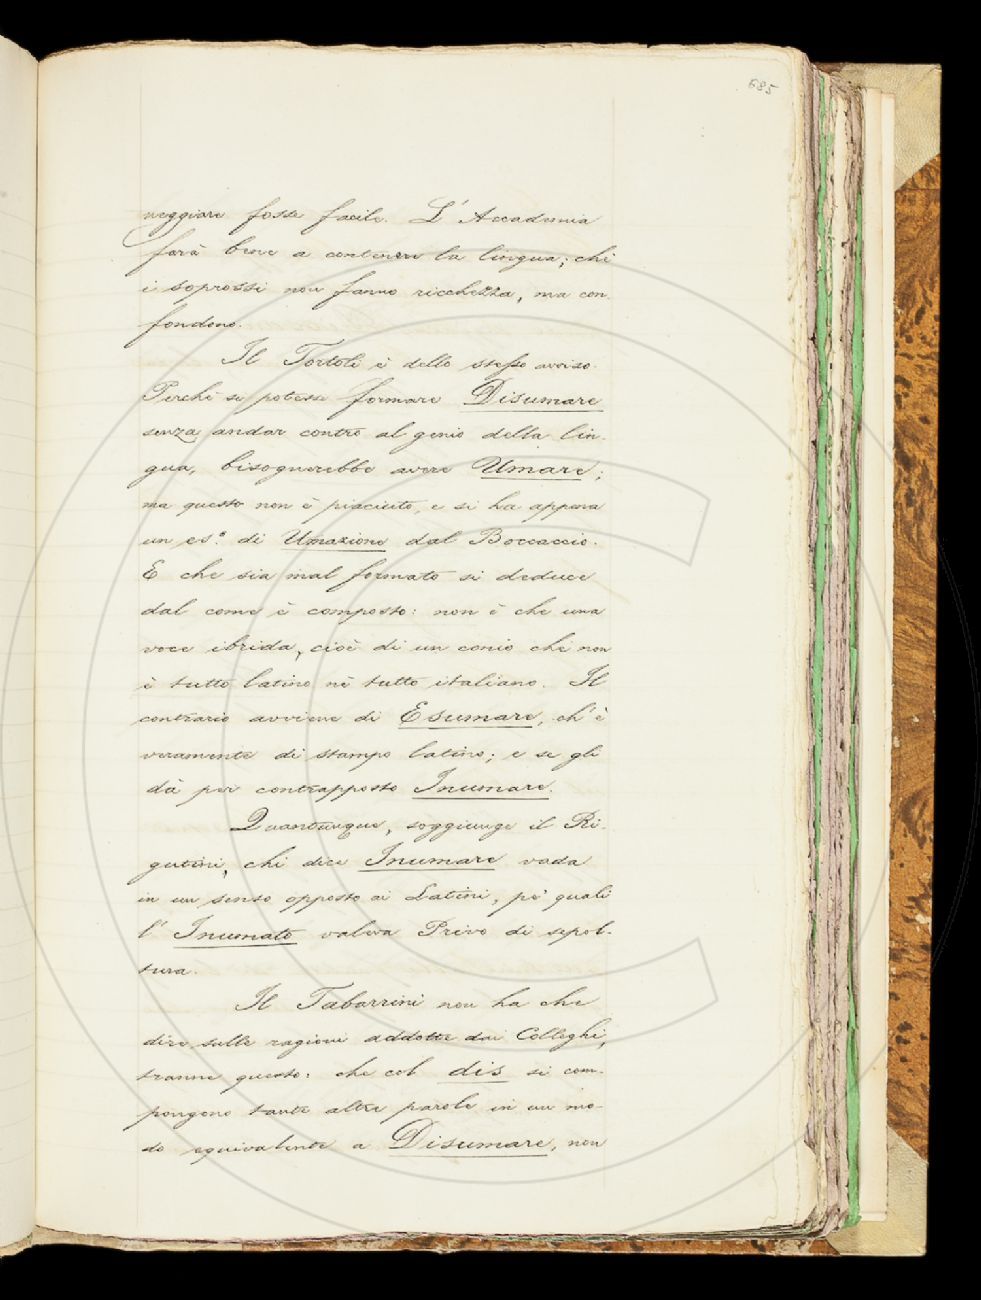 685
neggiare fosse facile. L'Accademia
farà bene a contenere la lingua; chè
i soprossi non fanno ricchezza, ma con-
fondono.
Il Tortoli è dello stesso avviso.
Perchè si potesse formare Disumare
senza andar contro al genio della lin-
gua, bisognerebbe avere Umare;
ma questo non è piaciuto, e si ha appena
un es.º di Umazione dal Boccaccio.
E che sia mal formato si deduce
dal come è composto: non è che una
voce ibrida, cioè di un conio che non
è tutto latino nè tutto italiano. Il
contrario avviene di Esumare, ch'è
veramente di stampo latino; e se gli
dà per contrapposto Inumare.
Quantunque, soggiunge il Ri-
gutini, chi dice Inumare vada
in un senso opposto ai Latini, pe' quali
l'Inumato valeva Privo di sepol-
tura.
Il Tabarrini non ha che
dire sulle ragioni addotte dai Colleghi,
tranne questo: che col dis si com-
pongono tante altre parole in un mo-
do equivalente a Disumare, non